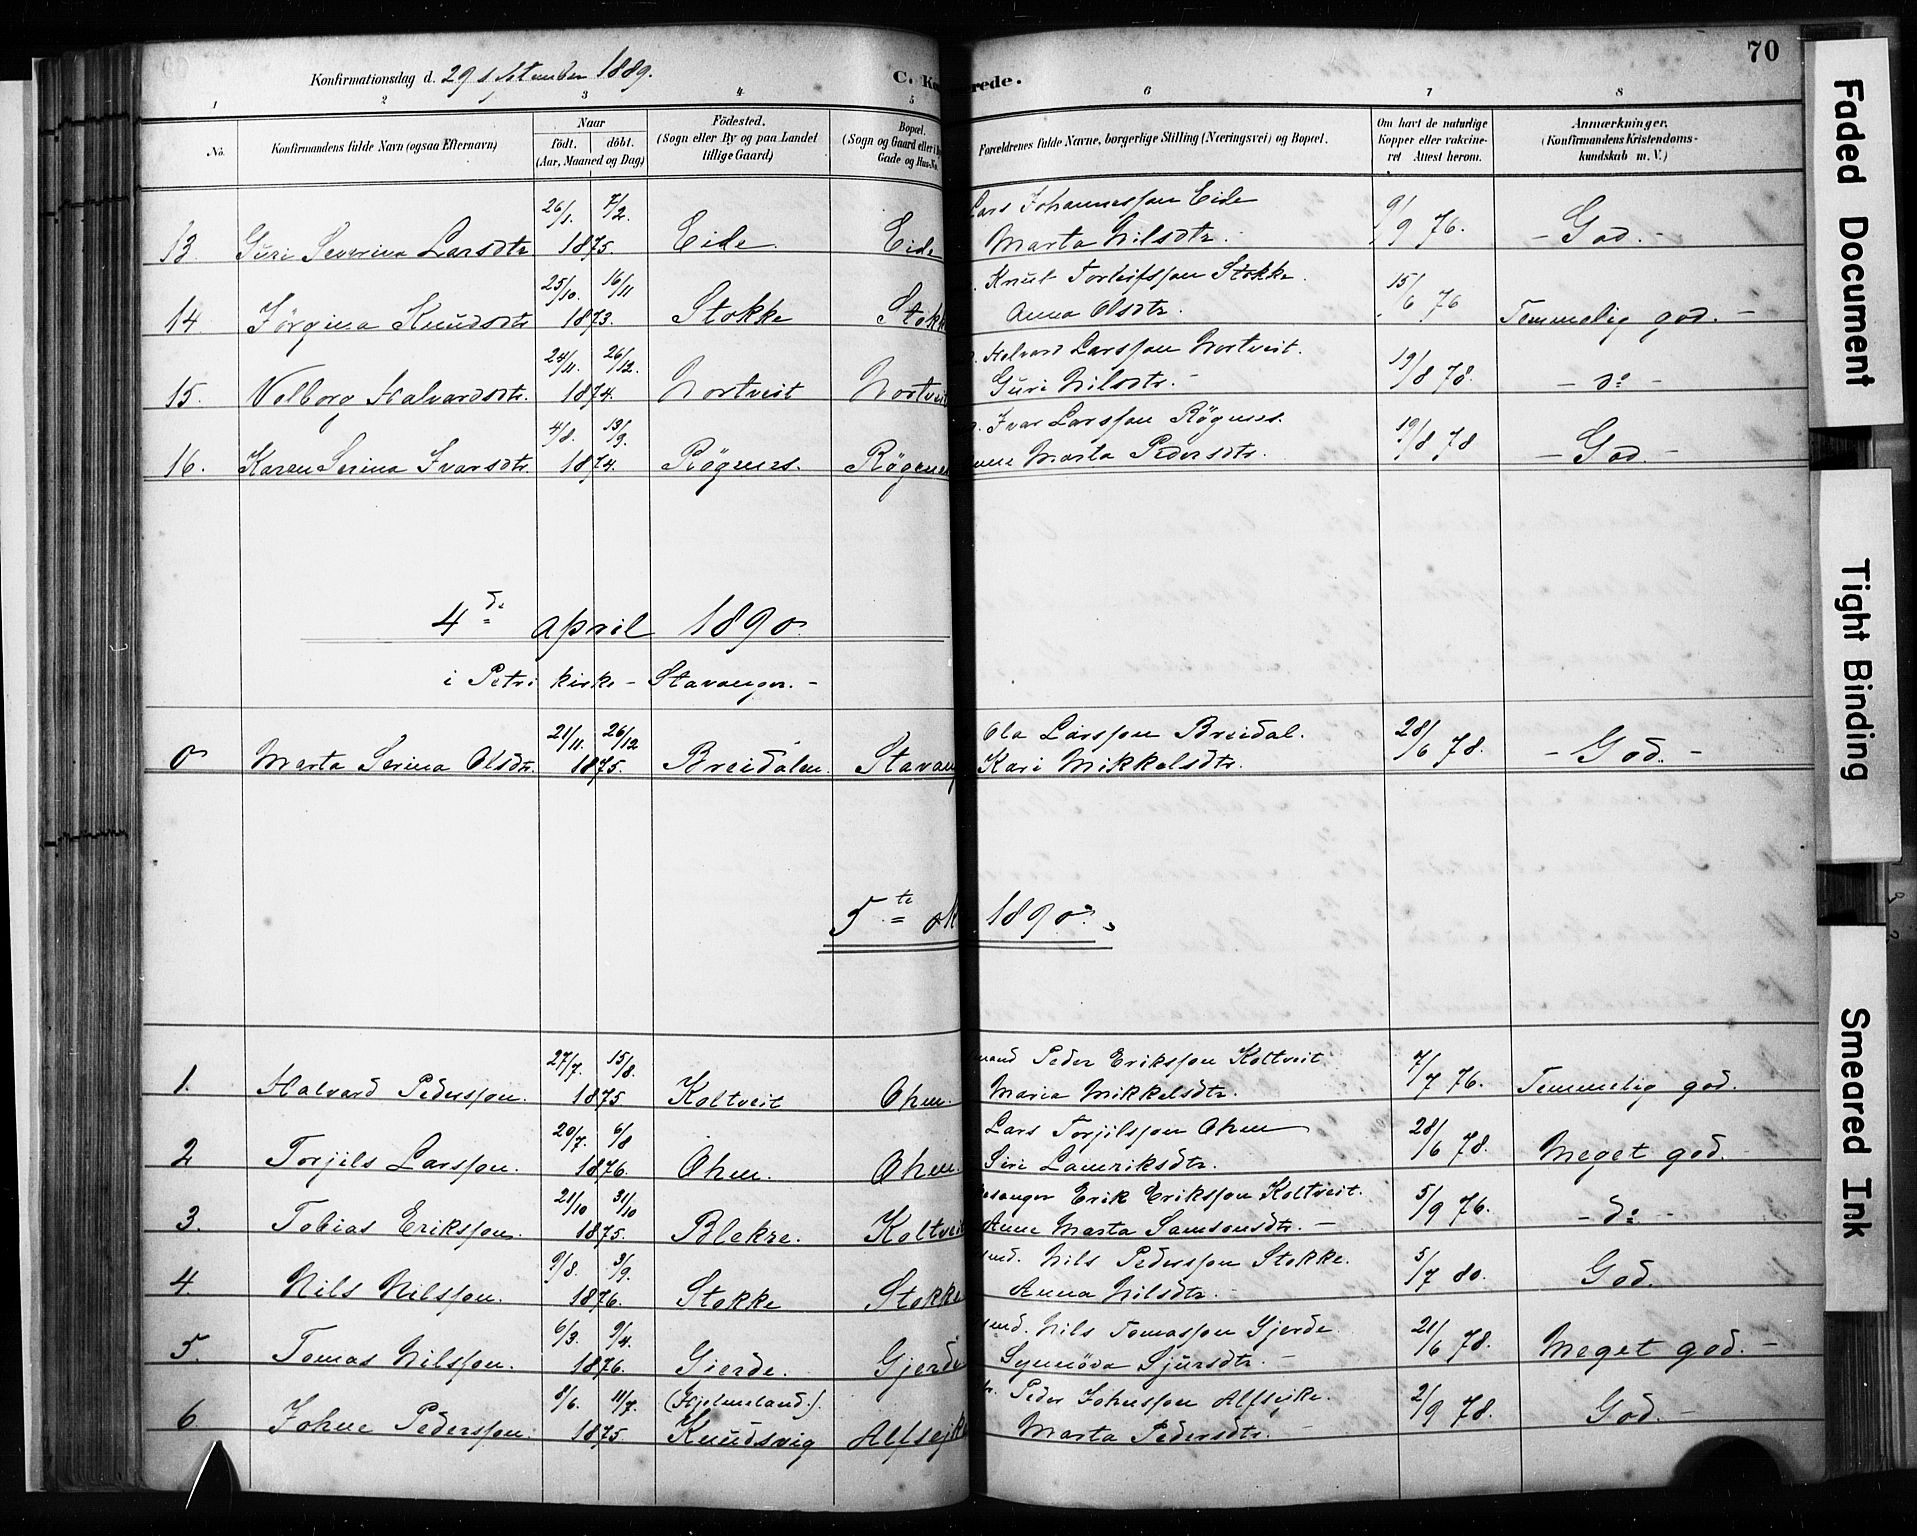 70
Konfirmationsdag d. 29 September 1889.
C. Ko rede.
1 2 3 4 5 6 7 8
No.
Konfirmandens fulde Navn (ogsaa Efternavn)
Naar
født. døbt.
(Aar, Maaned og Dag)
Fødested.
(Sogn eller By og paa Landet
tillige Gaard)
Bopæl.
(Sogn og Gaard eller i
Gade og Hus-No.
Forældrenes fulde Navne, borgerlige Stilling (Næringsvei) og Bopæl.
Om havt de naturlige
Kopper eller vakcine-
ret Attest herom.
Anmærkninger.
(Konfirmandens Kristendoms-
kundskab m. V.)
26/1. 7/2. Lars Johannesson Eide 9/9 76.
13. Guri Severina Larsdtr 1875. Eide. Eide Marta Nilsdtr. - God. -
25/10. 16/11 Knut Torleifsson Stokke. 15/6 76
14 Jörgina Knudsdtr 1873. Stokke Stokk Anna Olsdtr. Temmelig god. -
24/11. 26/12. Halvard Larsson Nortveit. 19/8 78.
15. Valborg Halvardsdtr. 1874. Nortveit Nortveit Guri Nilsdtr. - - do -
4/8. 13/9. Ivar Larsson Røgenes. 19/8 78
16. Karen Serina Ivarsdtr. 1874. Røgenes. Røgenes Marta Pedersdtr. - God. -
4de april 1890
i Petri kirke - Stavanger. -
21/11. 26/12 Ola Larsson Breidal. 28/6 78.
0 Marta Serina Olsdtr. 1875. Breidalen. Stavang Kari Mikkelsdtr. - God. -
5te ok 1890.
27/7. 15/8. Peder Eriksson Koltveit 7/7 76.
1. Halvard Pedersson. 1875. Koltveit Ohm. Maria Mikkelsdtr. Temmelig god.
20/7. 6/8 Lars Torjilsson Ohm 28/6 78.
2 Torjils Larsson. 1876. Ohm. Ohm. Siri Lauriksdtr. Meget god.
21/10 31/10 Erik Eriksson Koltveit. 5/9 76.
3. Tobias Eriksson. 1875. Blekre. Koltveit Anne Marta Samsonsdtr. - - do -
9/8. 3/9. Nils Pedersson Stokke. 5/7 80.
4. Nils Nilsson. 1876. Stokke Stokke Anna Nilsdtr. - God.
6/3. 9/4. Nils Tomasson Gjerde. 21/6 78.
5. Tomas Nilsson. 1876. Gierde. Gjerde Synnöva Sjursdtr. - Meget god. -
9/6. 11/7. (Hjelmeland.) Peder Johnsson Alfsejke. 2/9 78.
6 Johne Pedersson. 1875. Knudsvig Alfsejk Marta Pedersdtr. - God. -
Faded Document
Tight Binding
Smeared Ink